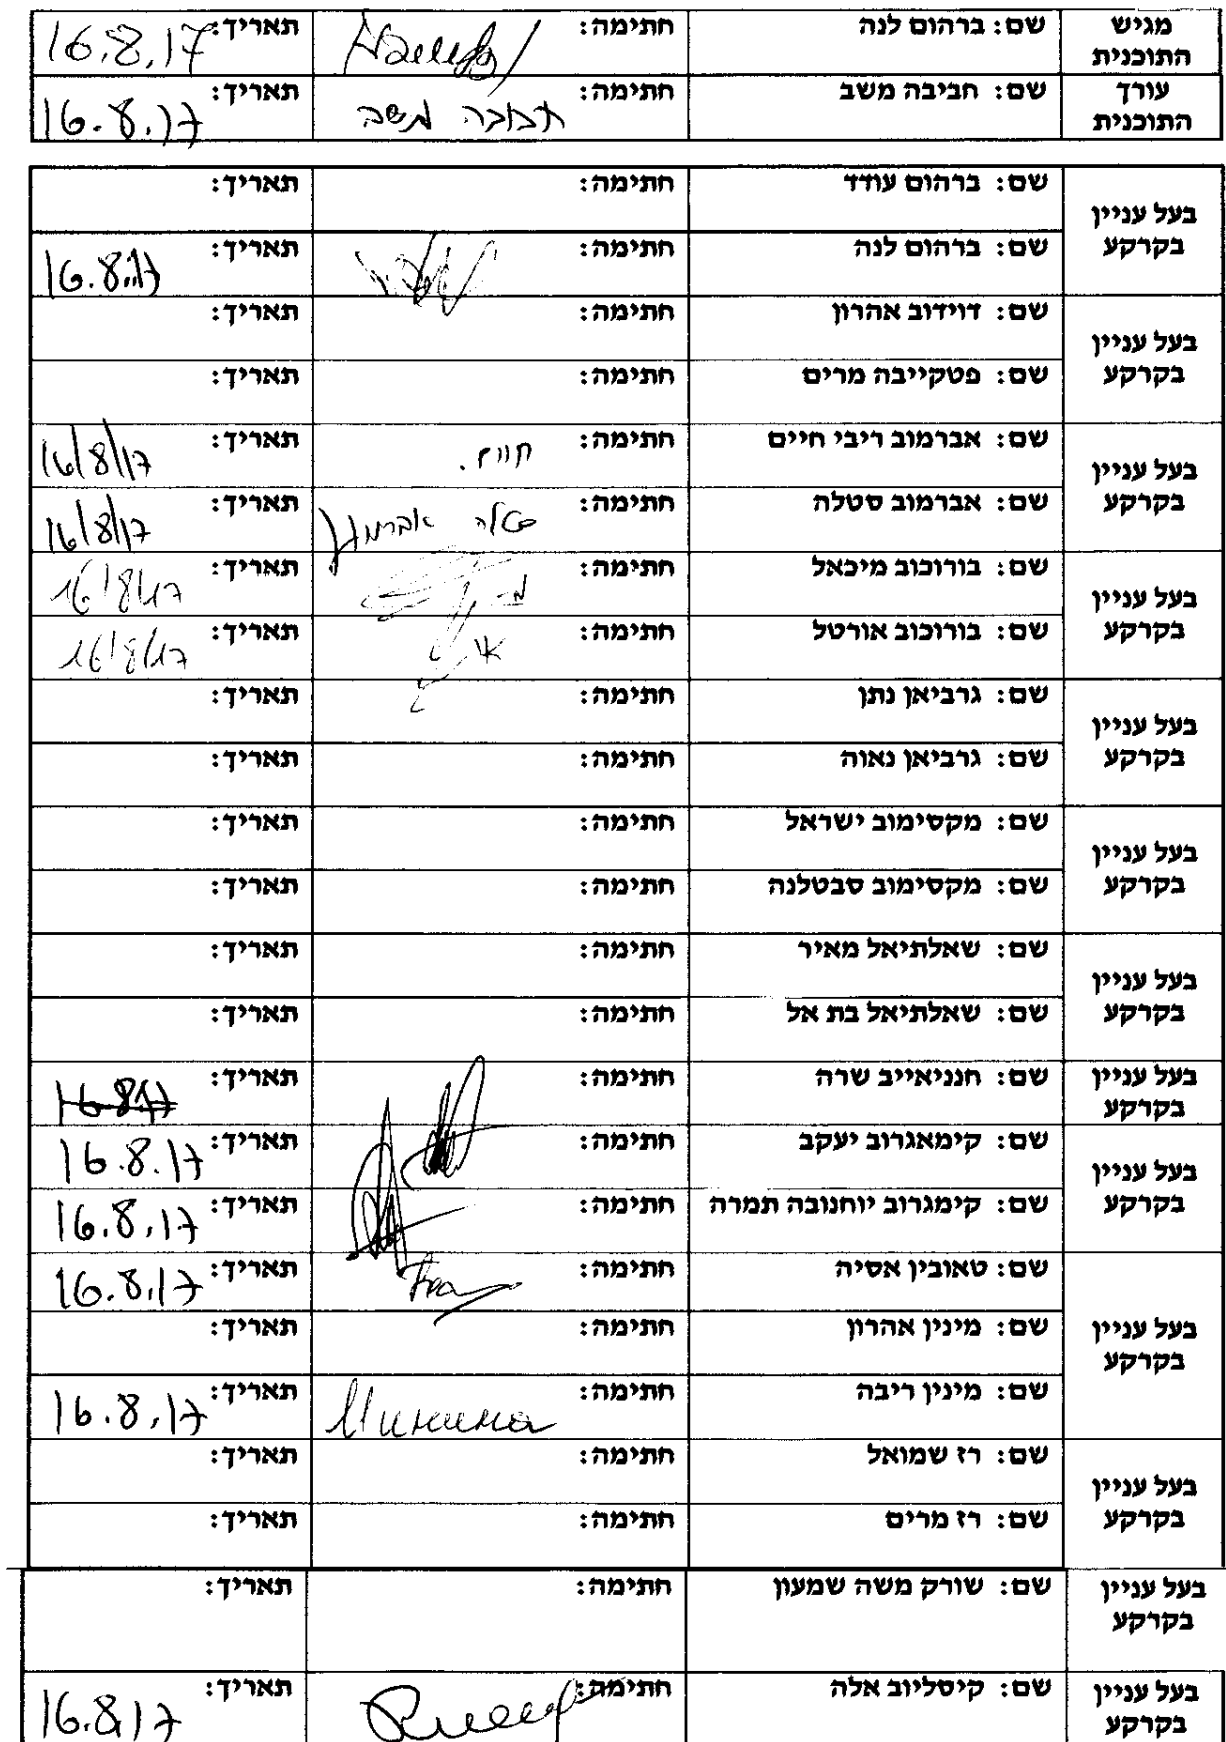 מגיש התוכנית שם: ברהום לנה חתימה: תאריך: 16.8.17
עורך התוכנית שם: חביבה משב חתימה: חביבה משב תאריך: 16.8.17
בעל עניין בקרקע שם: ברהום עודד חתימה: תאריך:
שם: ברהום לנה חתימה: תאריך: 16.8.17
בעל עניין בקרקע שם: דוידוב אהרון חתימה: תאריך:
שם: פטקייבה מרים חתימה: תאריך:
בעל עניין בקרקע שם: אברמוב ריבי חיים חתימה: תאריך: 16/8/17
שם: אברמוב סטלה חתימה: סטלה אברמוב תאריך: 16/8/17
בעל עניין בקרקע שם: בורוכוב מיכאל חתימה: תאריך: 16/8/17
שם: בורוכוב אורטל חתימה: תאריך: 16/8/17
בעל עניין בקרקע שם: גרביאן נתן חתימה: תאריך:
שם: גרביאן נאוה חתימה: תאריך:
בעל עניין בקרקע שם: מקסימוב ישראל חתימה: תאריך:
שם: מקסימוב סבטלנה חתימה: תאריך:
בעל עניין בקרקע שם: שאלתיאל מאיר חתימה: תאריך:
שם: שאלתיאל בת אל חתימה: תאריך:
בעל עניין בקרקע שם: חנניאייב שרה חתימה: תאריך: 16.8.17
בעל עניין בקרקע שם: קימאגרוב יעקב חתימה: תאריך: 16.8.17
שם: קימגרוב יוחנובה תמרה חתימה: תאריך: 16.8.17
בעל עניין בקרקע שם: טאובין אסיה חתימה: תאריך: 16.8.17
שם: מינין אהרון חתימה: תאריך:
שם: מינין ריבה חתימה: Минина תאריך: 16.8.17
בעל עניין בקרקע שם: רז שמואל חתימה: תאריך:
שם: רז מרים חתימה: תאריך:
בעל עניין בקרקע שם: שורק משה שמעון חתימה: תאריך:
בעל עניין בקרקע שם: קיסליוב אלה חתימה: תאריך: 16.8.17